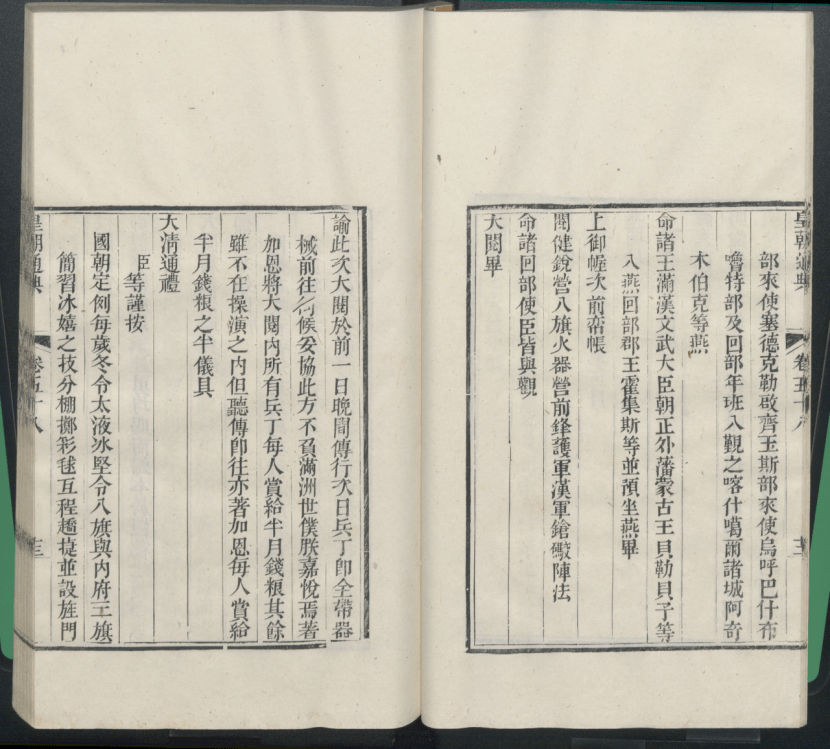 皇朝通典 卷五十八 十二
部來使塞德克勒啟齊玉斯部來使烏呼巴什布
嚕特部及回部年班入覲之喀什噶爾諸城阿奇
木伯克等燕
命諸王滿漢文武大臣朝正外藩蒙古王貝勒貝子等
入燕回部郡王霍集斯等並預坐燕畢
上御幄次前帟帳
閱健銳營八旗火器營前鋒護軍漢軍鎗礮陣法
命諸回部使臣皆與觀
大閱畢
諭此次大閱於前一日晚間傳行次日兵丁卽全帶器
械前往伺候妥協此方不負滿洲世僕朕嘉悅焉著
加恩將大閱內所有兵丁每人賞給半月錢糧其餘
雖不在操演之內但聽傳卽往亦著加恩每人賞給
半月錢糧之半儀具
大淸通禮
臣等謹按
國朝定例每歲冬令太液冰堅令八旗與內府三旗
簡習冰嬉之技分棚擲彩毬互程趫捷並設旌門
皇朝通典 卷五十八 十三